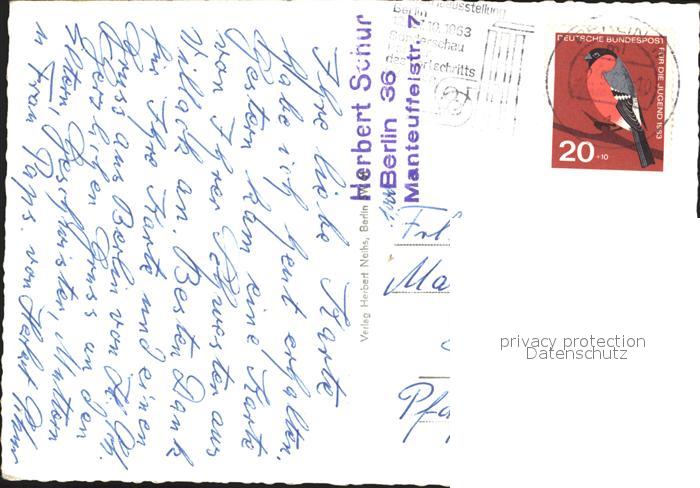 Ihre liebe Karte
habe ich heut erhalten.
Gestern kam eine Karte
von Ihrer Schwester aus
Villach an. Besten Dank
für Ihre Karte und einen
Gruss aus Berlin von
herzlichen Gruss an den
Eltern, Geschwister, Muttern
u Frau Paps. von Herbert
Herbert Schur
Berlin 36
Manteuffelstr. 7
Verlag Herbert Neihs, Berlin
Berlin
1963
des Fortschritts
DEUTSCHE BUNDESPOST
FÜR DIE JUGEND 1963
20 +10
Frl.
Ma
Pfa
privacy protection
Datenschutz